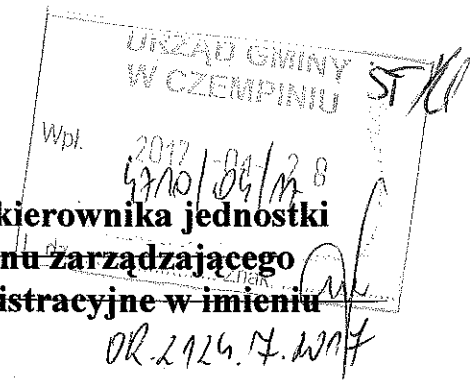 URZĄD GMINY
W CZEMPINIU
ST
Wpł. 2017 -04- 28
4710/04/17
kierownika jednostki
nu zarządzającego
znak
istracyjne w imieniu
OR.2124.7.2017